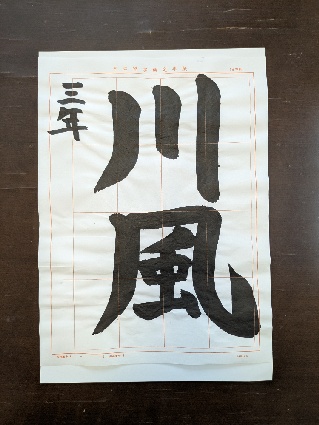 川風
三年